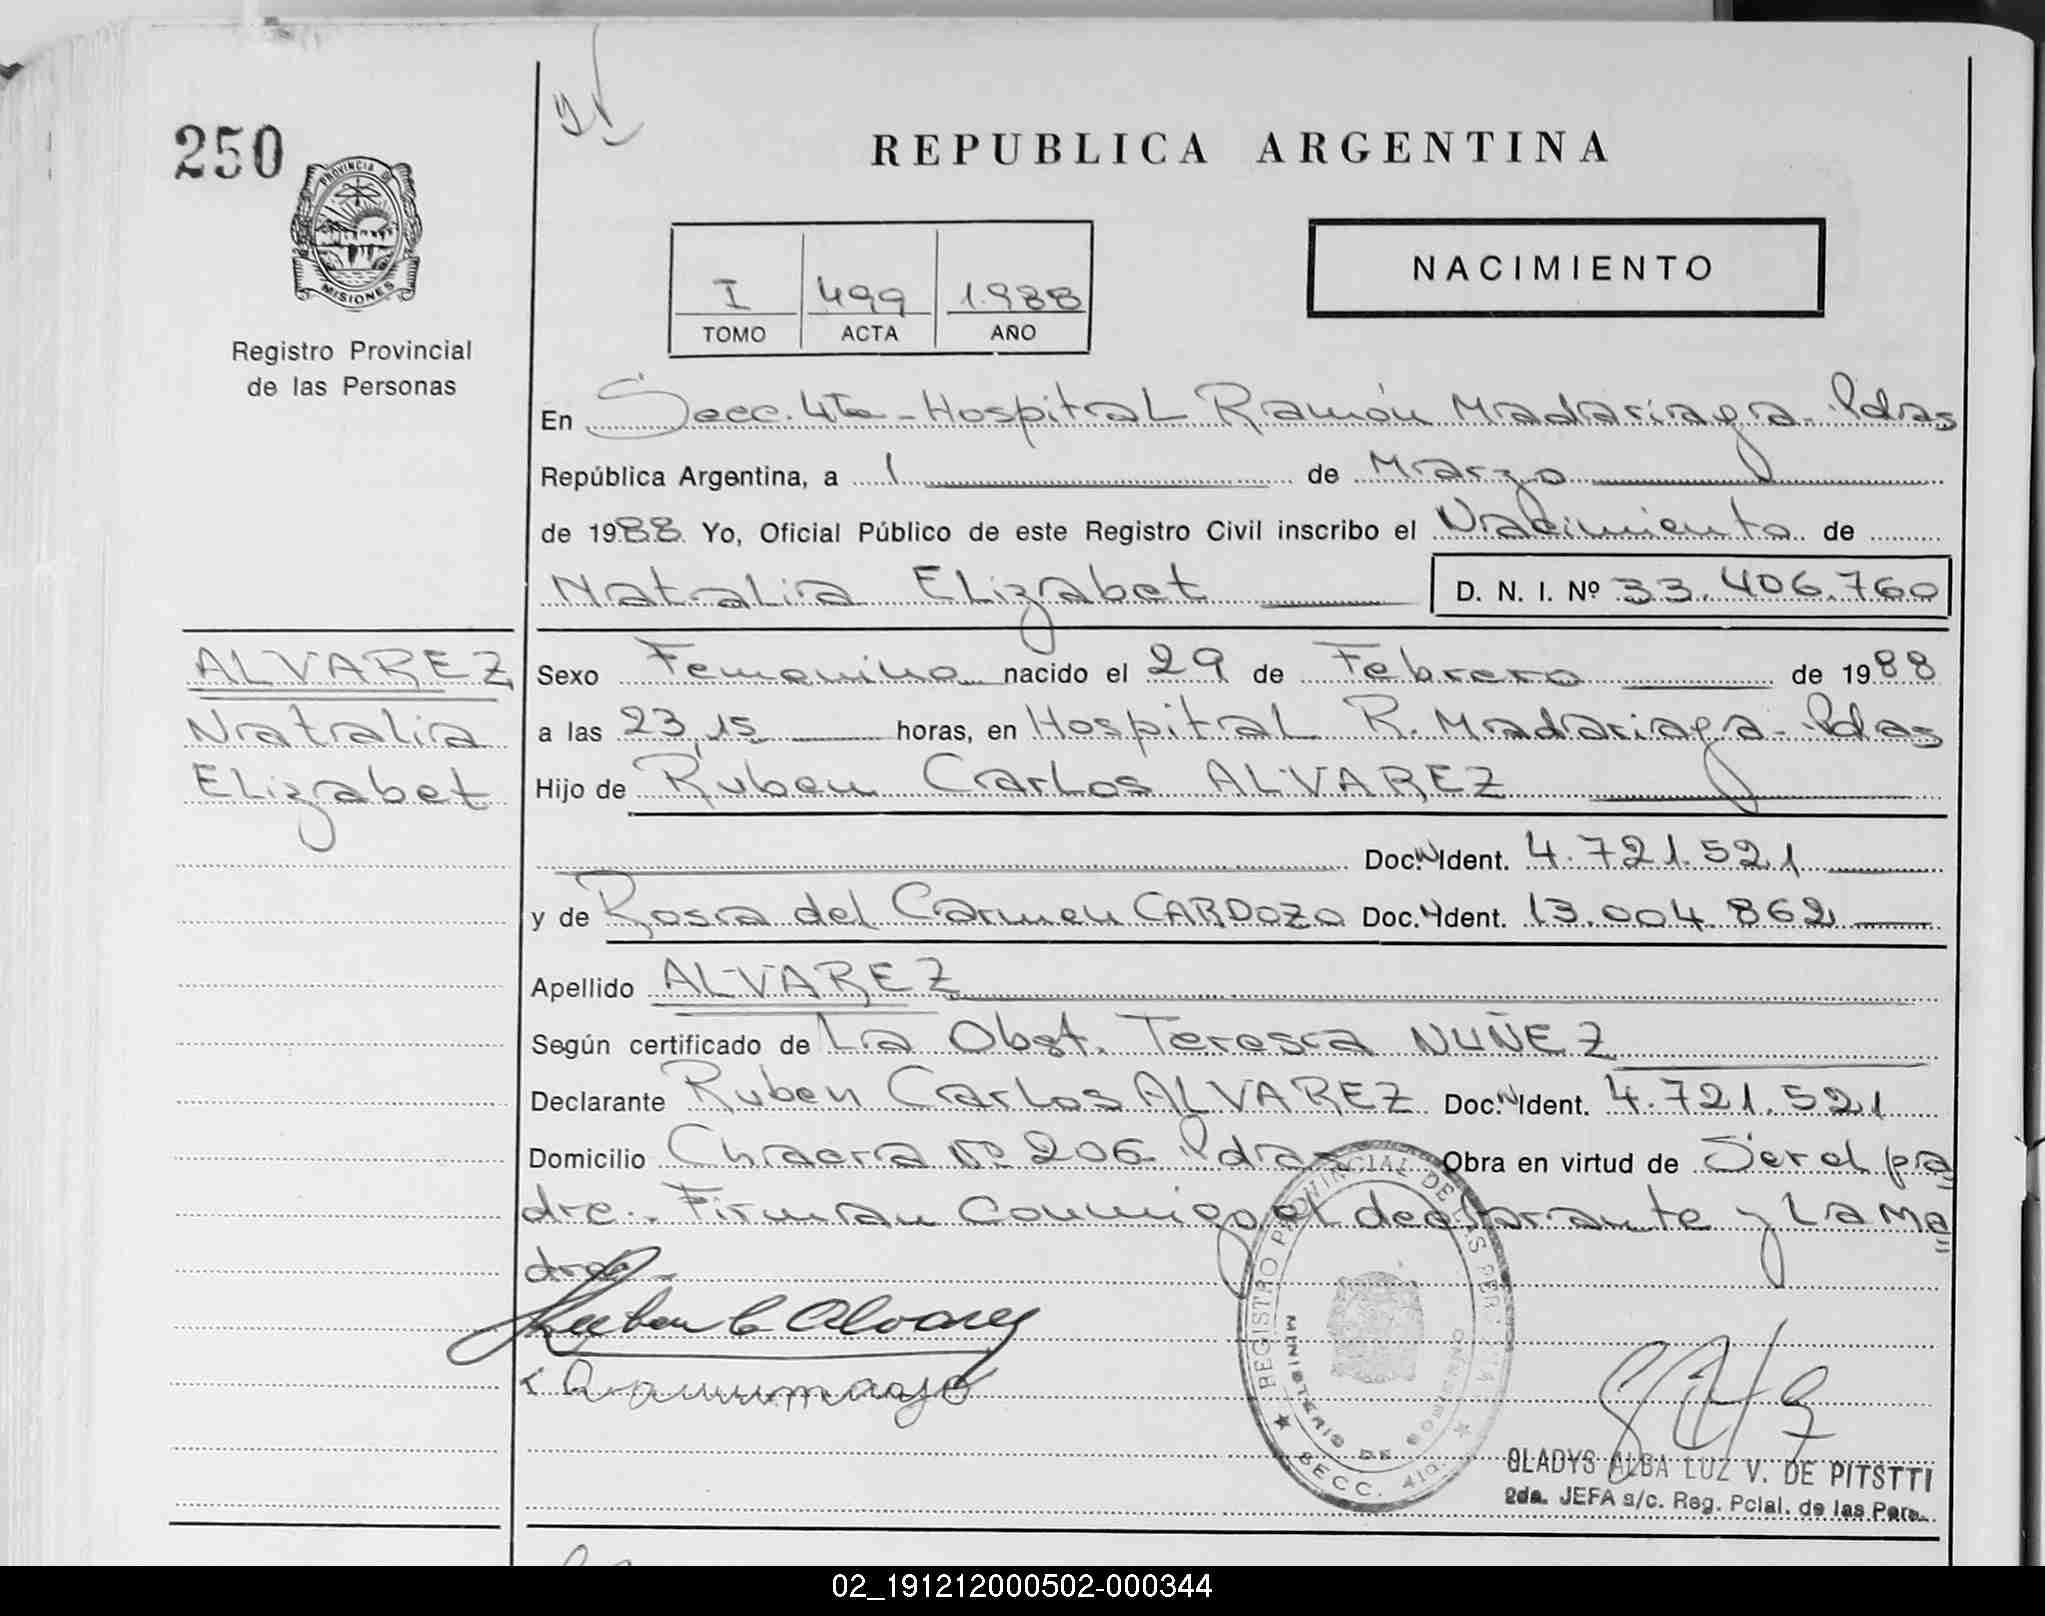 250
REPUBLICA ARGENTINA
PROVINCIA DE
MISIONES
Registro Provincial
de las Personas
I 499 1.988
TOMO ACTA AÑO
NACIMIENTO
En Secc. 4ta - Hospital Ramón Madariaga - Pdas
República Argentina, a 1 de Marzo
de 1988 Yo, Oficial Público de este Registro Civil inscribo el Nacimiento de
Natalia Elizabet D. N. I. Nº 33.406.760
ALVAREZ
Natalia
Elizabet
Sexo Femenino nacido el 29 de Febrero de 1988
a las 23,15 horas, en Hospital R. Madariaga - Pdas
Hijo de Ruben Carlos ALVAREZ
Doc. N Ident. 4.721.521
y de Rosa del Carmen CARDOZO Doc. Ident. 13.004.862
Apellido ALVAREZ
Según certificado de La Obst. Teresa NUÑEZ
Declarante Ruben Carlos ALVAREZ Doc. N Ident. 4.721.521
Domicilio Chacra Nº 206 Pdas Obra en virtud de Ser el pa
dre.- Firman Conmigo el declarante y La Ma
dre.-
Ruben C Alvarez
REGISTRO PROVINCIAL DE LAS PER
MINISTERIO DE GOBIERNO
SECC. 4ta.
GLADYS ALBA LUZ V. DE PITSTTI
2da. JEFA s/c. Reg. Pcial. de las Pers.
02_191212000502-000344